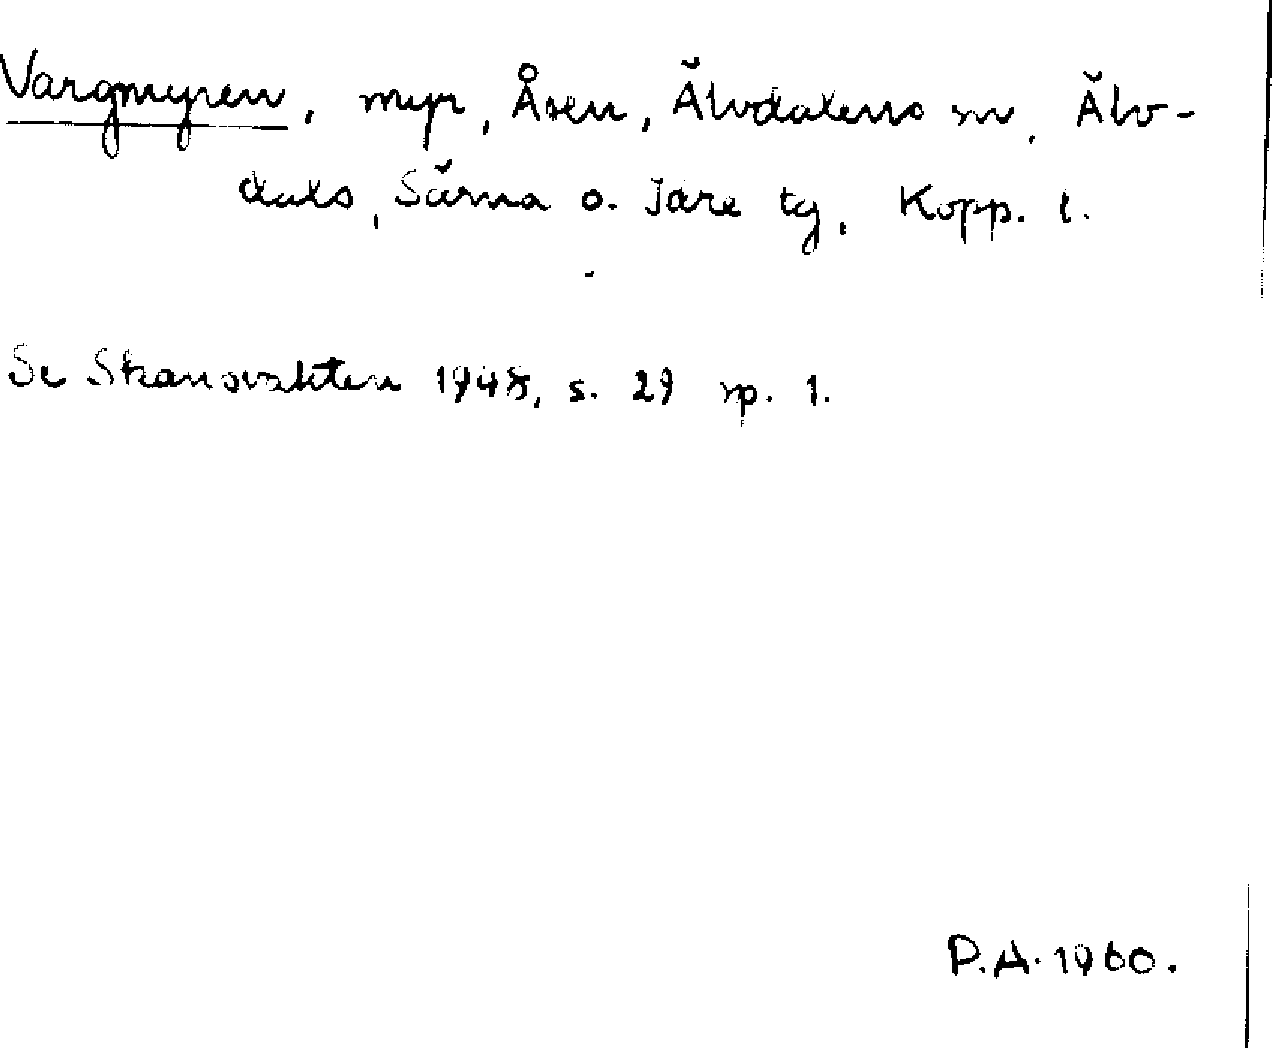 Vargmyren, myr, Åsen, Älvdalens sn, Älv-
dals, Särna o. Idre tg, Kopp. l.
Se Skansvakten 1948, s. 29 sp. 1.
P.A. 1960.